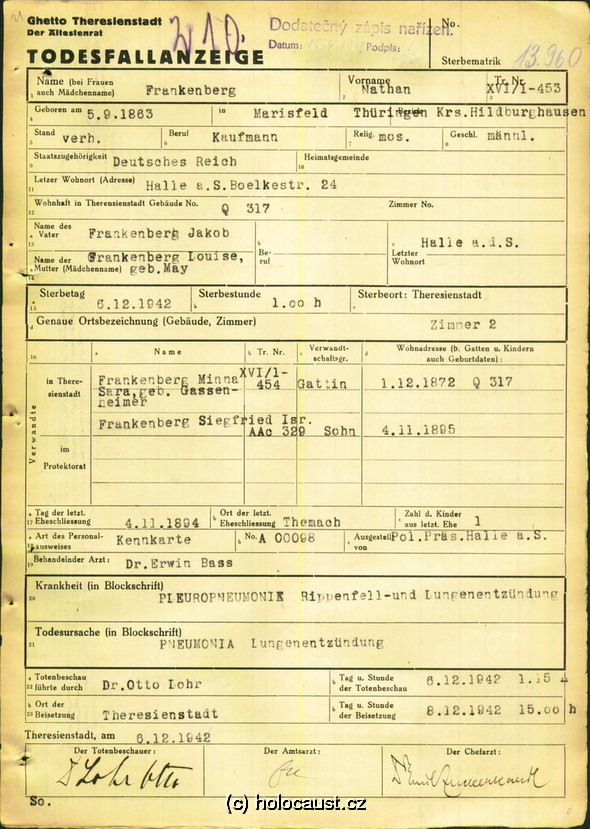 Ghetto Theresienstadt
Der Ältestenrat
W10.
Dodatečný zápis nařízen.
Datum: Podpis:
No.
TODESFALLANZEIGE
Sterbematrik 13.960
Name (bei Frauen auch Mädchenname) Frankenberg Vorname Nathan Tr. Nr. XVI/1-453
Geboren am 5.9.1863 in Marisfeld Thüringen Krs.Hildburghausen
Stand verh. Beruf Kaufmann Relig. mos. Geschl. männl.
Staatszugehörigkeit Deutsches Reich Heimatsgemeinde
Letzer Wohnort (Adresse) Halle a.S.Boelkestr. 24
Wohnhaft in Theresienstadt Gebäude No. Q 317 Zimmer No.
Name des Vater Frankenberg Jakob Beruf Letzter Wohnort Halle a.d.S.
Name der Mutter (Mädchenname) Frankenberg Louise, geb.May
Sterbetag 6.12.1942 Sterbestunde 1.00 h Sterbeort: Theresienstadt
Genaue Ortsbezeichnung (Gebäude, Zimmer) Zimmer 2
Name Tr. Nr. Verwandtschaftsgr. Wohnadresse (b. Gatten u. Kindern auch Geburtdaten):
Verwandte
in Theresienstadt
Frankenberg Minna Sara,geb. Gassenheimer XVI/1-454 Gattin 1.12.1872 Q 317
Frankenberg Siegfried Isr. AAc 329 Sohn 4.11.1895
im Protektorat
Tag der letzt. Eheschliessung 4.11.1894 Ort der letzt. Eheschliessung Themach Zahl d. Kinder aus letzt. Ehe 1
Art des Personalausweises Kennkarte No. A 00098 Ausgestellt von Pol.Präs.Halle a.S.
Behandelnder Arzt: Dr.Erwin Bass
Krankheit (in Blockschrift)
PLEUROPNEUMONIE Rippenfell-und Lungenentzündung
Todesursache (in Blockschrift)
PNEUMONIA Lungenentzündung
Totenbeschau führte durch Dr.Otto Lohr Tag u. Stunde der Totenbeschau 6.12.1942 1.15
Ort der Beisetzung Theresienstadt Tag u. Stunde der Beisetzung 8.12.1942 15.00 h
Theresienstadt, am 6.12.1942
Der Totenbeschauer: Der Amtsarzt: Der Chefarzt:
Dr Lohr Otto
So.
(c) holocaust.cz